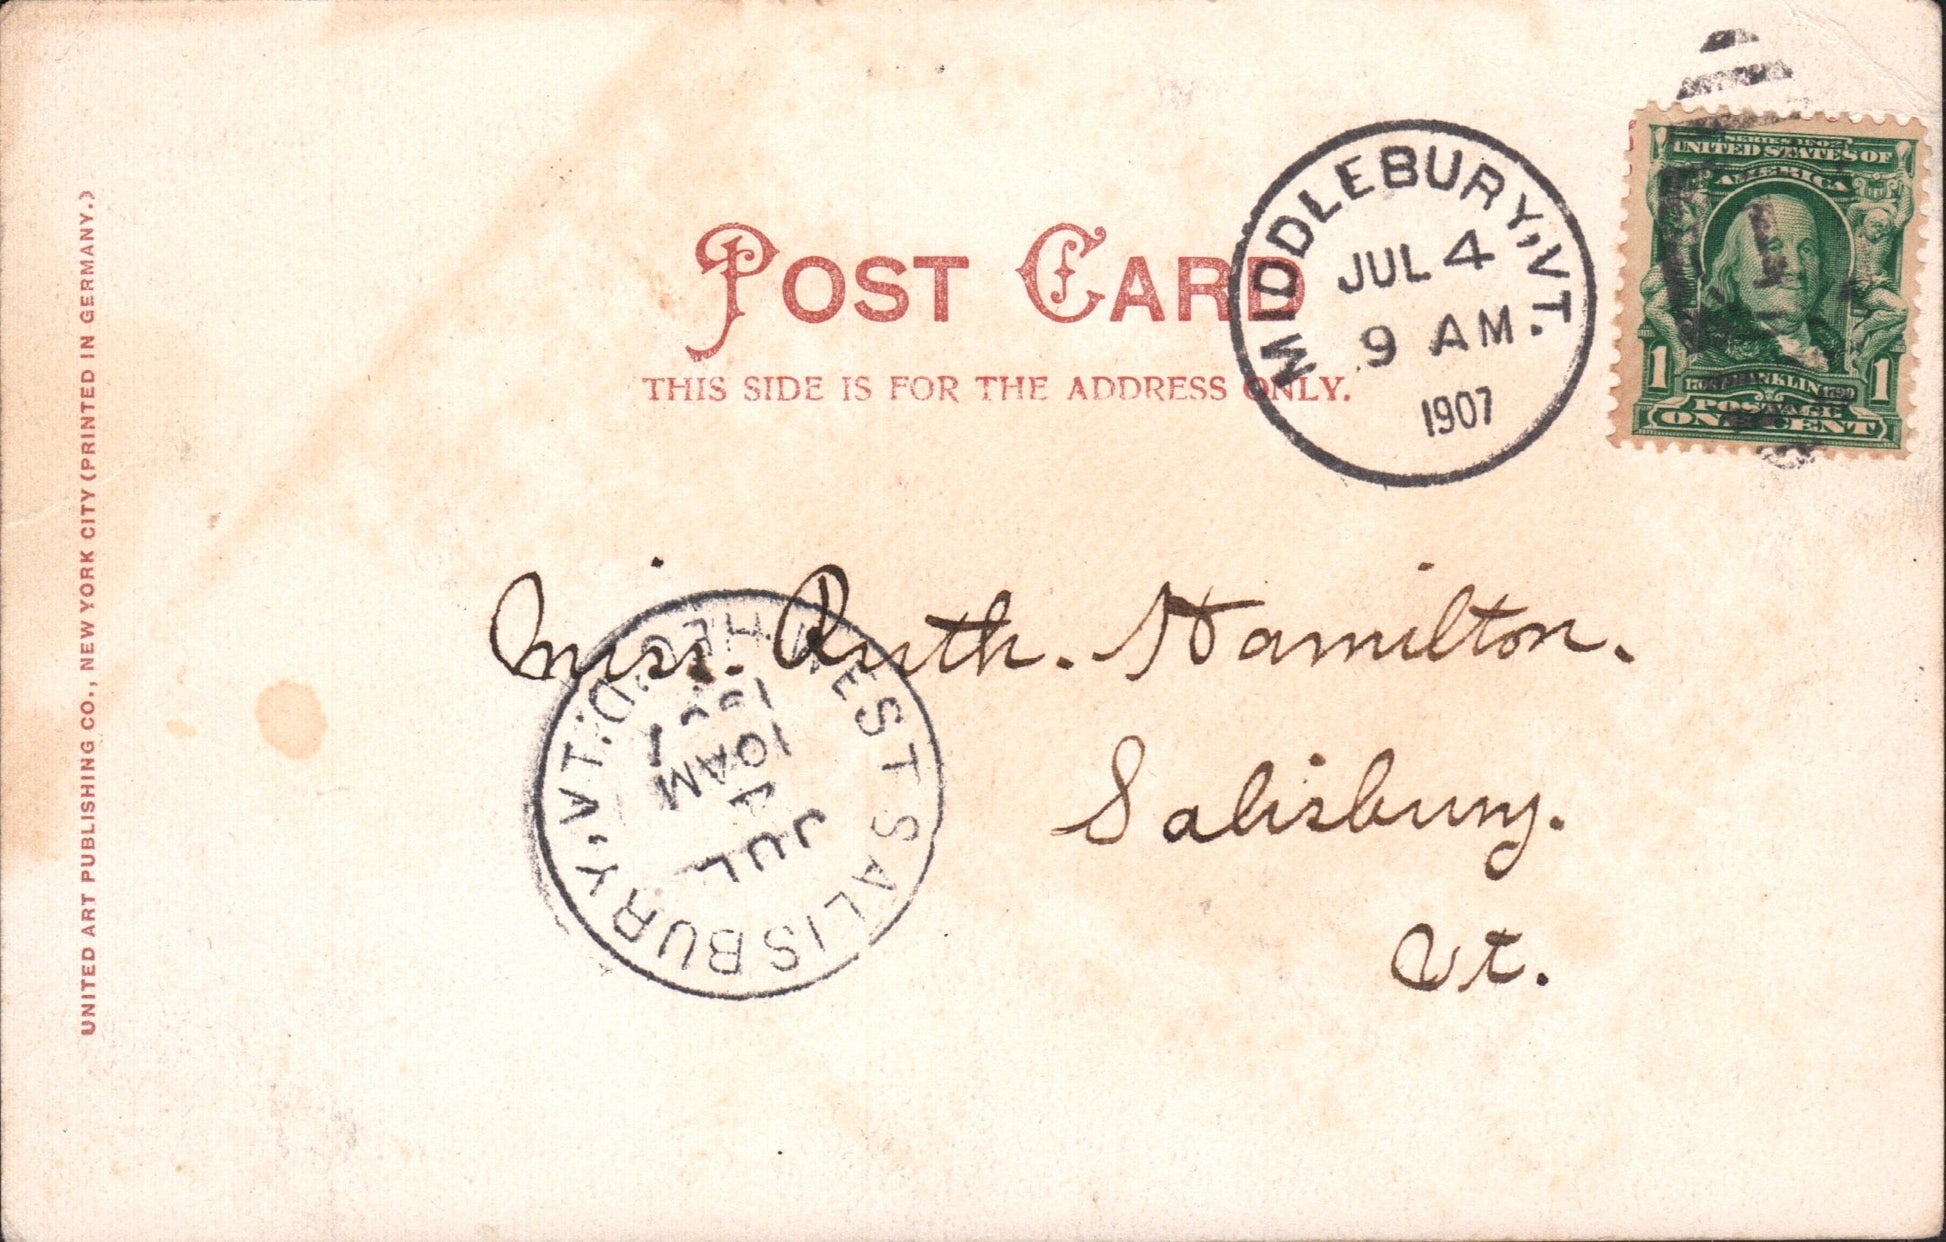 POST CARD
THIS SIDE IS FOR THE ADDRESS ONLY.
MIDDLEBURY, VT.
JUL 4
9 AM
1907
SERIES 1902
UNITED STATES OF
AMERICA
1 FRANKLIN 1790 1
POSTAGE
ONE CENT
Miss. Ruth. Hamilton.
Salisbury.
Vt.
WEST SALISBURY, VT.
REC'D.
JUL
4
10 AM
UNITED ART PUBLISHING CO., NEW YORK CITY (PRINTED IN GERMANY.)